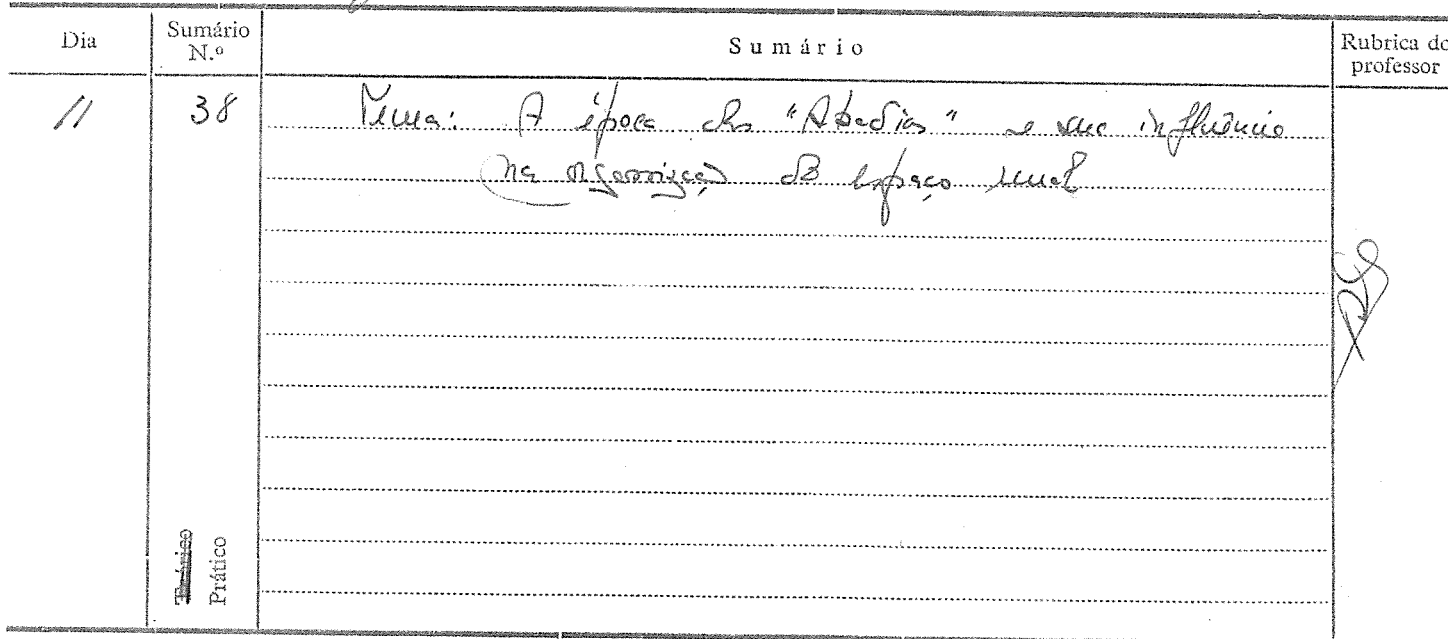 Dia
Sumário N.º
Sumário
Rubrica do professor
11
38
Tema: A época das "Abadias" e sua influência
na organização do espaço rural
Teórico
Prático